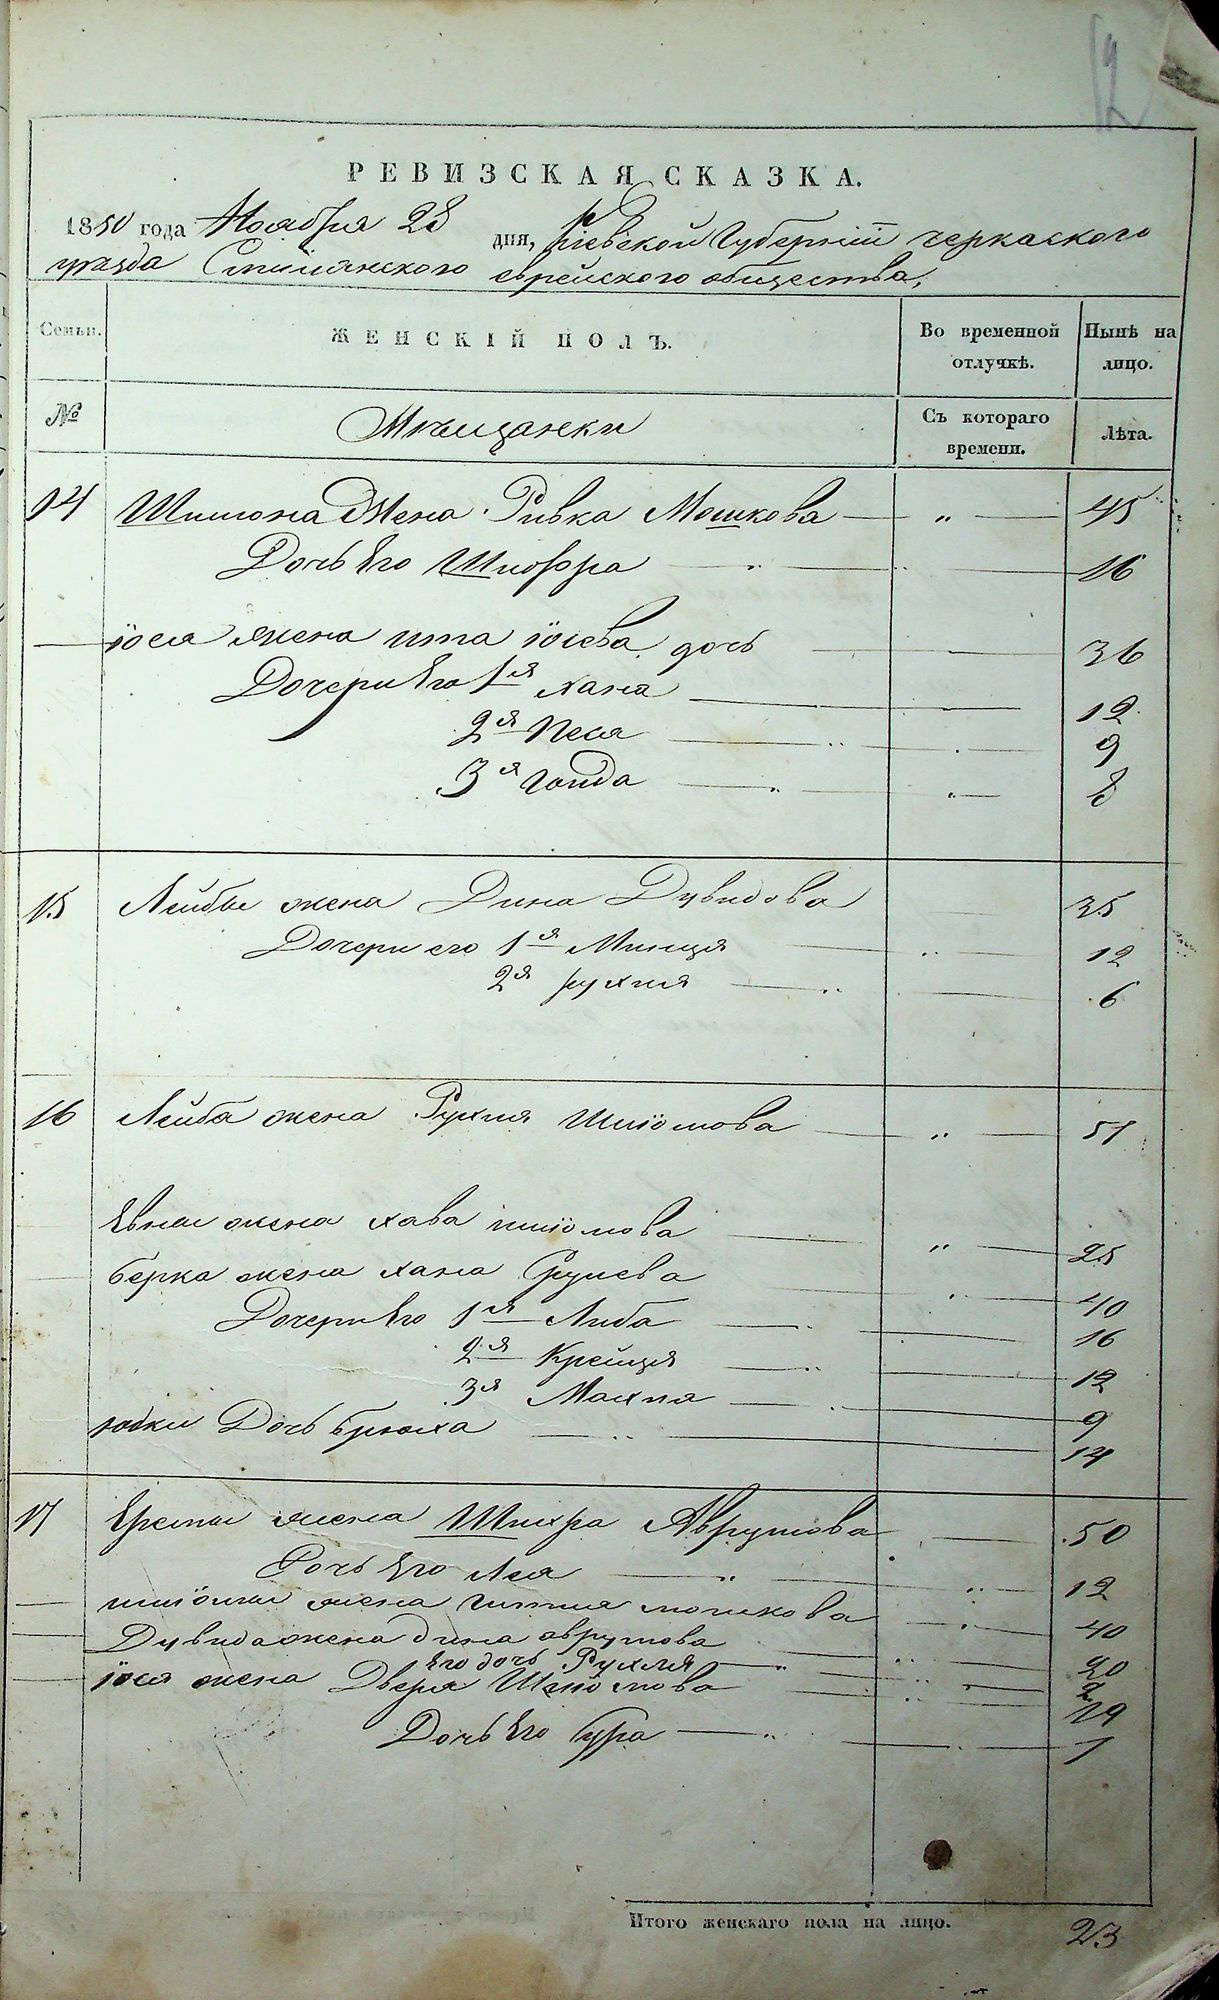 12
РЕВИЗСКАЯ СКАЗКА.
1850 года Ноября 28 дня, Кіевской Губерніи черкаского
уѣзда Смилянского еврейского общества,
Семьи. ЖЕНСКІЙ ПОЛЪ. Во временной отлучкѣ. Нынѣ на лицо.
№ Мѣщанки Съ котораго времени. Лѣта.
14 Шимона Жена Ривка Мошкова — „ — 45
Дочь Его Шифра — „ — 16
— іося жена ита іосева дочь — 36
Дочери Его 1я Хана — 12
2я Песя — „ — 9
3я Гоида — „ — 8
15 Лейбы жена Дина Дувидова — 35
Дочери его 1я Минця — „ — 12
2я рухля — „ — 6
16 Лейба жена Рухля Шліомова — „ — 51
Евны жена хава шліомова — „ — 25
берка жена хана Срулева — 40
Дочери Его 1я Либа — „ — 16
2я Крейця — „ — 12
3я Махля — „ — 9
юдки Дочь брюха — „ — 14
17 Еремы жена Шихра Аврумова — 50
Дочь Его Лея — „ — 12
— шліомы жена гитля мошкова — „ — 40
— Дувида жена дина аврумова — „ — 20
Его дочь Рухля — „ — 2
— іося жена Двера Шліомова — „ — 19
Дочь Его Сура — „ — 1
Итого женскаго пола на лицо. 23